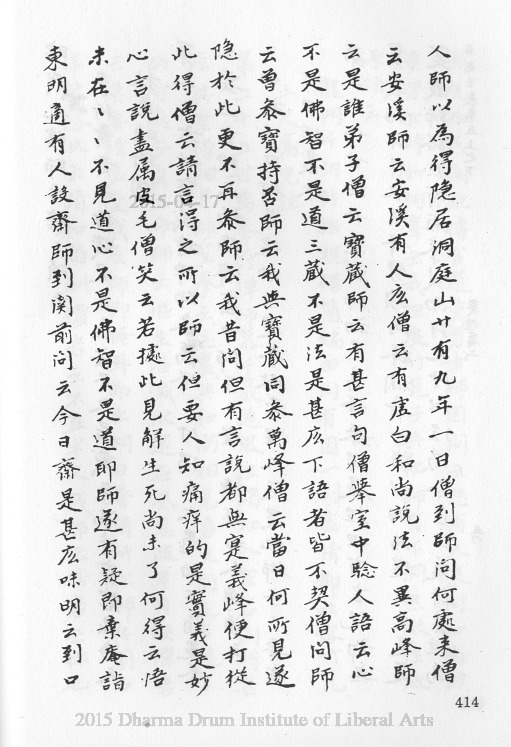 人師以為得隐居洞庭山廿有九年一日僧到師問何處来僧
云安溪師云安溪有人庅僧云有虚白和尚說法不異高峰師
云是誰弟子僧云寶蔵師云有甚言句僧舉室中驗人語云心
不是佛智不是道三蔵不是法是甚庅下語者皆不契僧問師
云曽叅寶持否師云我與寶蔵同叅萬峰僧云當日何所見遂
隐於此更不再叅師云我昔問但有言說都無寔義峰便打從
此得僧云請言得之所以師云但要人知痛痒的是實義是妙
心言說盡属皮毛僧笑云若據此見解生死尚未了何得云悟
未在〻〻不見道心不是佛智不是道即師遂有疑即棄庵詣
東明適有人設齋師到関前问云今日齋是甚庅味明云到口
414
2015-04-17
2015 Dharma Drum Institute of Liberal Arts